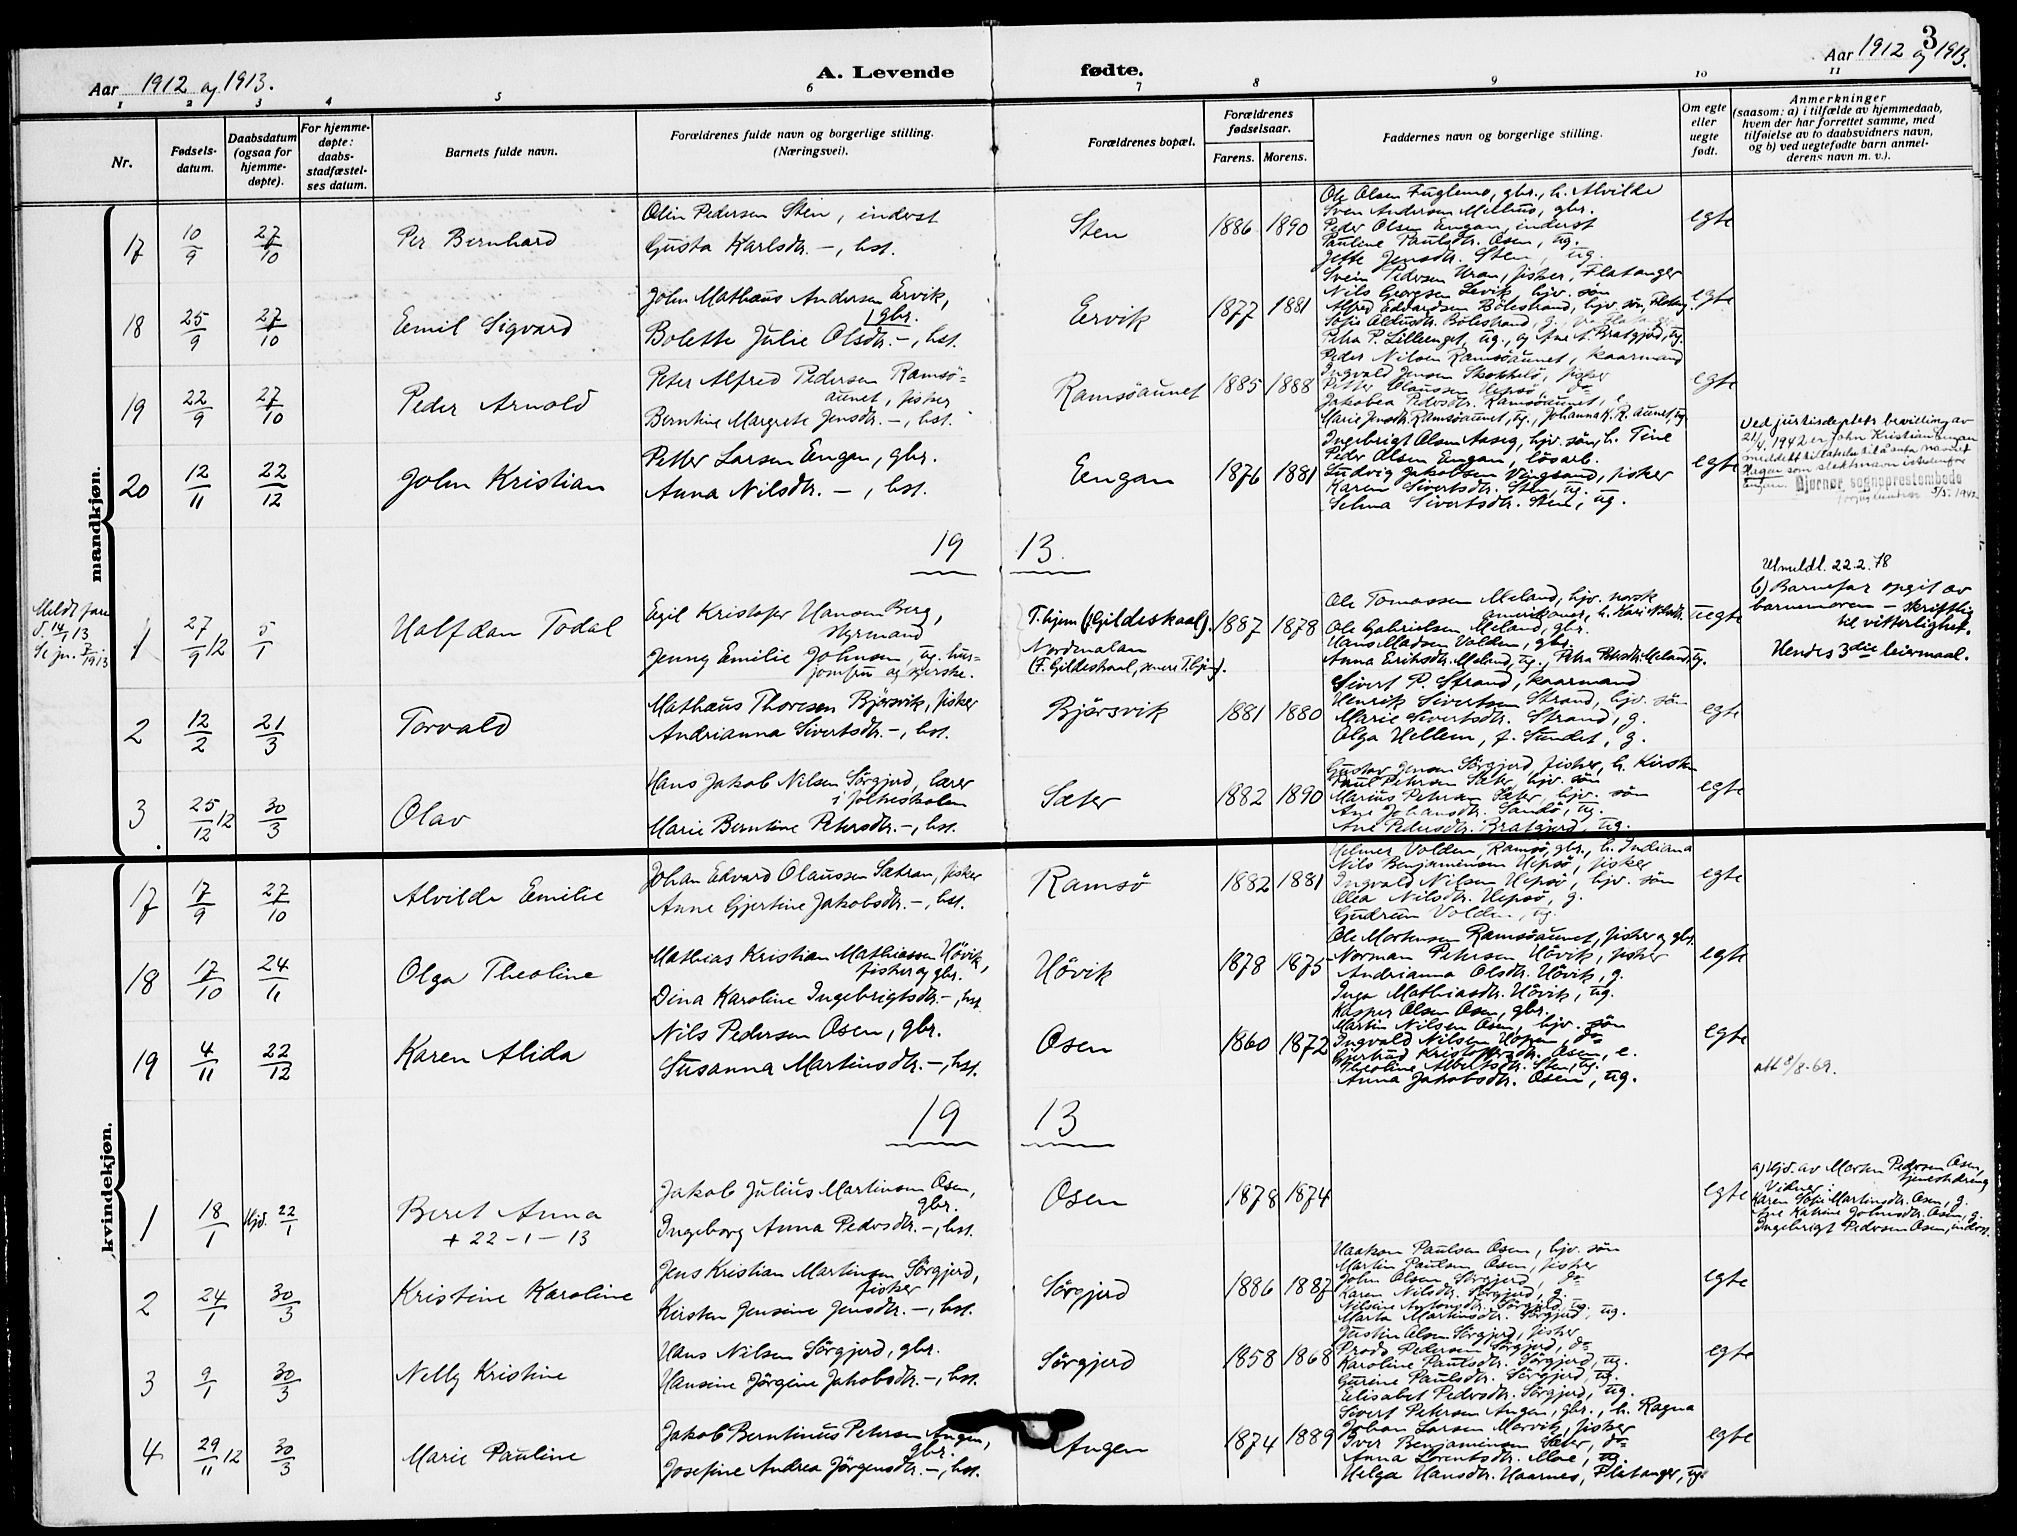 3
Aar 1912 og 1913.
A. Levende
fødte.
Aar 1912 og 1913.
1 2 3 4 5 6 7 8 9 10 11
Nr.
Fødsels-
datum.
Daabsdatum
(ogsaa for
hjemme-
døpte).
For hjemme-
døpte:
daabs-
stadfæstel-
ses datum.
Barnets fulde navn.
Forældrenes fulde navn og borgerlige stilling.
(Næringsvei).
Forældrenes bopæl.
Forældrenes
fødselsaar.
Farens. Morens.
Faddernes navn og borgerlige stilling.
Om egte
eller
uegte
født.
Anmerkninger
(saasom: a) i tilfælde av hjemmedaab,
hvem der har forrettet samme, med
tilføielse av to daabsvidners navn,
og b) ved uegtefødte barn anmel-
derens navn m. v.).
mandkjøn.
17 10/9 27/10 Per Bernhard
Olin Pedersen Sten, inderst
Gusta Karlsdtr. —, hst.
Sten 1886 1890
Ole Olsen Fuglemo, gbr., h. Alvilde
Sven Andersen Melhus, gbr.
Peder Olsen Engan, inderst
Pauline Paulsdtr. Osen, ug.
Jette Jensdtr. Sten, ug.
egte
18 25/9 27/10 Emil Sigvard
John Mathæus Andersen Ervik,
gbr.
Bolette Julie Olsdtr. —, hst.
Ervik 1877 1881
Svein Pedersen Uran, fisker, Flatanger
Nils Georgsen Levik, hjv. søn
Alfred Edvardsen Bölestrand, hjv. søn, Flatang.
Petra P. Lilleenget, ug., og Ane A. Bratgjerd, ug.
egte
19 22/9 27/10 Peder Arnold
Peter Alfred Pedersen Ramsö-
aunet, fisker
Berntine Margrete Jensdtr. —, hst.
Ramsöaunet 1885 1888
Peder Nilsen Ramsöaunet, kaarmand
Ingvald Jensen Skottelö, fisker
Petter Olaussen Hepsö, do
Jakobea Pedersdtr. Ramsöaunet, e
Marie Jensdtr. Ramsöaunet, ug., Johanna K. R. aunet, ug.
egte
20 12/11 22/12 John Kristian
Petter Larsen Engan, gbr.
Anna Nilsdtr. —, hst.
Engan 1876 1881
Ingebrigt Olsen Aaseg, hjv. søn, h. Tine
Peder Olsen Engan, lösarb.
Ludvig Jakobsen Vingsand, fisker
Karen Sivertsdtr. Sten, ug.
Selma Sivertsdtr. Sten, ug.
egte
Ved justisdeptets bevilling av
21/4 1942 er John Kristian Engan
meddelt tillatelse til å anta navnet
Hagen som slektsnavn istedenfor
Engan. Bjørnør sogneprestembede
5/5. 1942
19 13.
Meldt fare
d. 14/1 13
1 27/9 12 5/1 Halfdan Todal
Egil Kristofer Hansen Berg,
styrmand
Jenny Emilie Johnsen, ug. hus-
jomfru og syerske.
T.hjem (f. Gildeskaal).
Nordmalan
(F. Gildeskaal, senere T.hjem).
1887 1878
Ole Tomassen Meland, hjv. norsk
amerikaner, h. Kari Olsdtr.
Ole Gabrielsen Meland, gbr.
Hans Madsen Volden, gbr.
Anna Eriksdtr. Meland, ug., Petra Petersdtr. Meland, ug.
uegte
Utmeldt. 22.2.78
b) Barnefar opgit av
barnemoren — skriftlig
til vitterlighet.
Hendes 3die leiermaal.
2 12/2 21/3 Torvald
Mathæus Thoresen Bjørsvik, fisker
Andrianna Sivertsdtr. —, hst.
Bjørsvik 1881 1880
Sivert P. Strand, kaarmand
Henrik Sivertsen Strand, hjv. søn
Marie Sivertsdtr. Strand, g.
Olga Hellem, f. Sundet, g.
egte
3 25/12 12 30/3 Olav
Hans Jakob Nilsen Sörgjerd, lærer
i folkeskolen
Marie Berntine Petersdtr. —, hst.
Sæter 1882 1890
Gustav Jensen Sörgjerd, fisker, h. Kirsten
Paul Petersen Sæter, hjv. søn
Marius Petersen Sæter, hjv. søn
Ane Johansdtr. Sandö, ug.
Ane Pedersdtr. Bratgjerd, ug.
egte
kvindekjøn.
17 17/9 27/10 Alvilde Emilie
Johan Edvard Olaussen Sætran, fisker
Anne Gjertine Jakobsdtr. —, hst.
Ramsö 1882 1881
Helmer Volden, Ramsö, gbr., h. Indiana
Nils Benjaminsen Hepsö, fisker
Ingvald Nilsen Hepsö, hjv. søn
Olea Nilsdtr. Hepsö, g.
Gudrun Volden, ug.
egte
18 17/10 24/11 Olga Theoline
Mathias Kristian Mathiassen Hövik,
fisker og gbr.
Dina Karoline Ingebrigtsdtr. —, hst.
Hövik 1878 1875
Ole Mortensen Ramsöaunet, fisker og gbr.
Norman Petersen Hövik, fisker
Andrianna Olsdtr. Hövik, g.
Inga Mathiasdtr. Hövik, ug.
egte
19 4/11 22/12 Karen Alida
Nils Pedersen Osen, gbr.
Susanna Martinusdtr. —, hst.
Osen 1860 1872
Kasper Olsen Osen, gbr.
Martin Nilsen Osen, hjv. søn
Ingvald Nilsen Hopen, do
Gjertrud Kristoffersdtr. Osen, e.
Theoline Albertsdtr. Sten, ug.
Anna Jakobsdtr. Osen, ug.
egte
att 8/8-69.
19 13
1 18/1 Hjd. 22/1 Beret Anna
+ 22-1-13
Jakob Julius Martinsen Osen,
gbr.
Ingeborg Anna Pedersdtr. —, hst.
Osen 1878 1874
egte
a) Hjd. av Morten Pedersen Osen,
tjenestedreng
Vidner:
Karen Sofie Martinsdtr. Osen, g.
Ane Katrine Johnsdtr. Osen, g.
Ingebrigt Pedersen Osen, inderst.
2 24/1 30/3 Kristine Karoline
Jens Kristian Martinsen Sörgjerd,
fisker
Kirsten Jensine Jensdtr. —, hst.
Sörgjerd 1886 1887
Haakon Paulsen Osen, hjv. søn
Martin Paulsen Osen, fisker
John Olsen Sörgjerd, do
Karen Nilsdtr. Sörgjerd, g.
Nilsine Antonsdtr. Sörgjerd, ug.
Marta Martinsdtr. Sörgjerd, ug.
egte
3 9/1 30/3 Nelly Kristine
Hans Nilsen Sörgjerd, gbr.
Hansine Jörgine Jakobsdtr. —, hst.
Sörgjerd 1858 1868
Justin Olsen Sörgjerd, fisker
Prods Pedersen Sörgjerd, do
Karoline Paulsdtr. Sörgjerd, ug.
Gurine Paulsdtr. Sörgjerd, ug.
Elisabet Pedersdtr. Sörgjerd, ug.
egte
4 29/11 12 30/3 Marie Pauline
Jakob Berntinus Petersen Angen,
gbr.
Josefine Andrea Jörgensdtr. —, hst.
Angen 1874 1889
Sivert Petersen Angen, gbr., h. Ragna
Johan Larsen Morvik, fisker
Iver Benjaminsen Sæter, do
Anna Lorentsdtr. Moe, ug.
Helga Hansdtr. Haarnes, Flatanger, ug.
egte